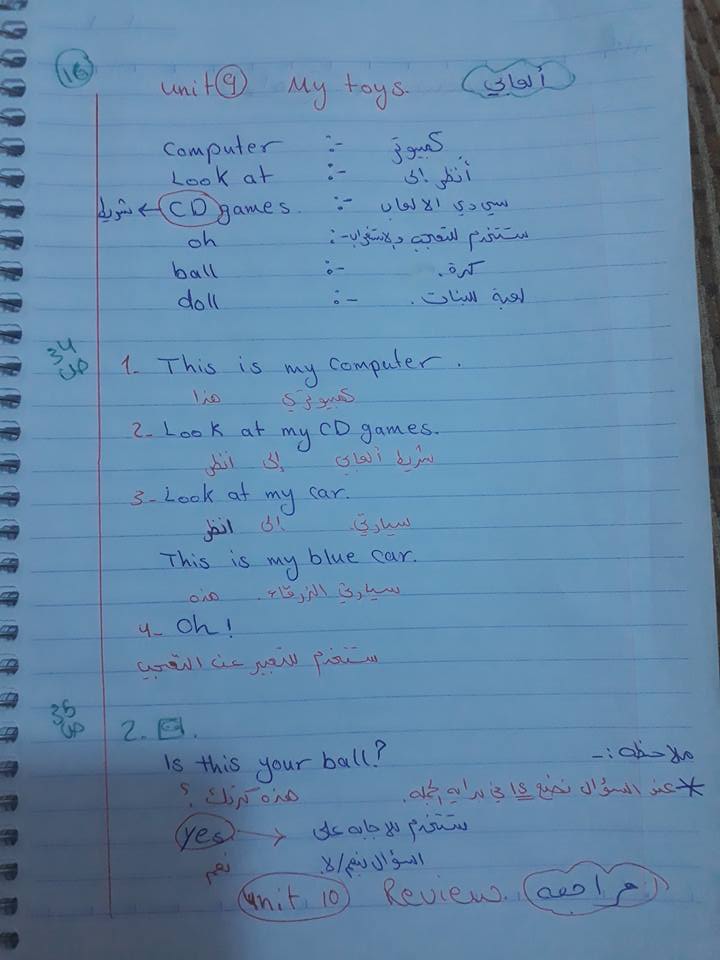 16
unit 9 My toys. ألعابي
Computer :- كمبيوتر
Look at :- أنظر إلى
شريط ← CD games :- سي دي الالعاب
oh :- ستخدم للتعجب والاستغراب
ball :- كرة.
doll :- لعبة البنات.
ص 34
1. This is my computer.
هذا كمبيوتري
2- Look at my CD games.
انظر إلى شريط ألعابي
3- Look at my car.
انظر إلى سيارتي.
This is my blue car.
هذه سيارتي الزرقاء.
4- Oh!
ستخدم للتعبير عن التعجب
ص 35
2.
Is this your ball? ملاحظه :-
هذه كرتك ؟ * عند السؤال نضع is في بدايه الجمله.
yes → ستخدم للاجابه على
نعم السؤال بنعم/لا.
unit 10 Review. مراجعه